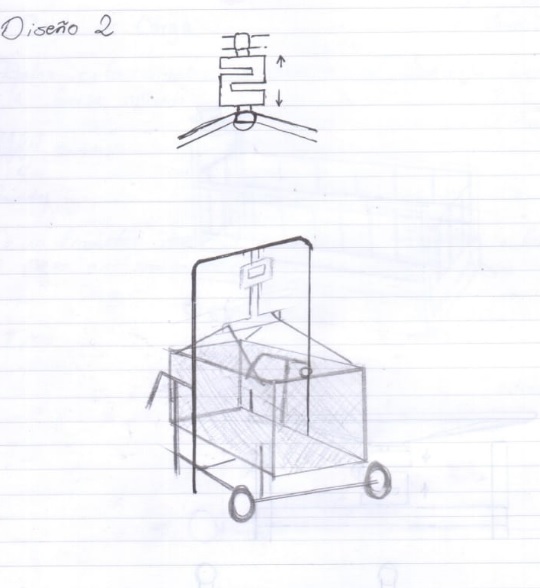 Diseño 2